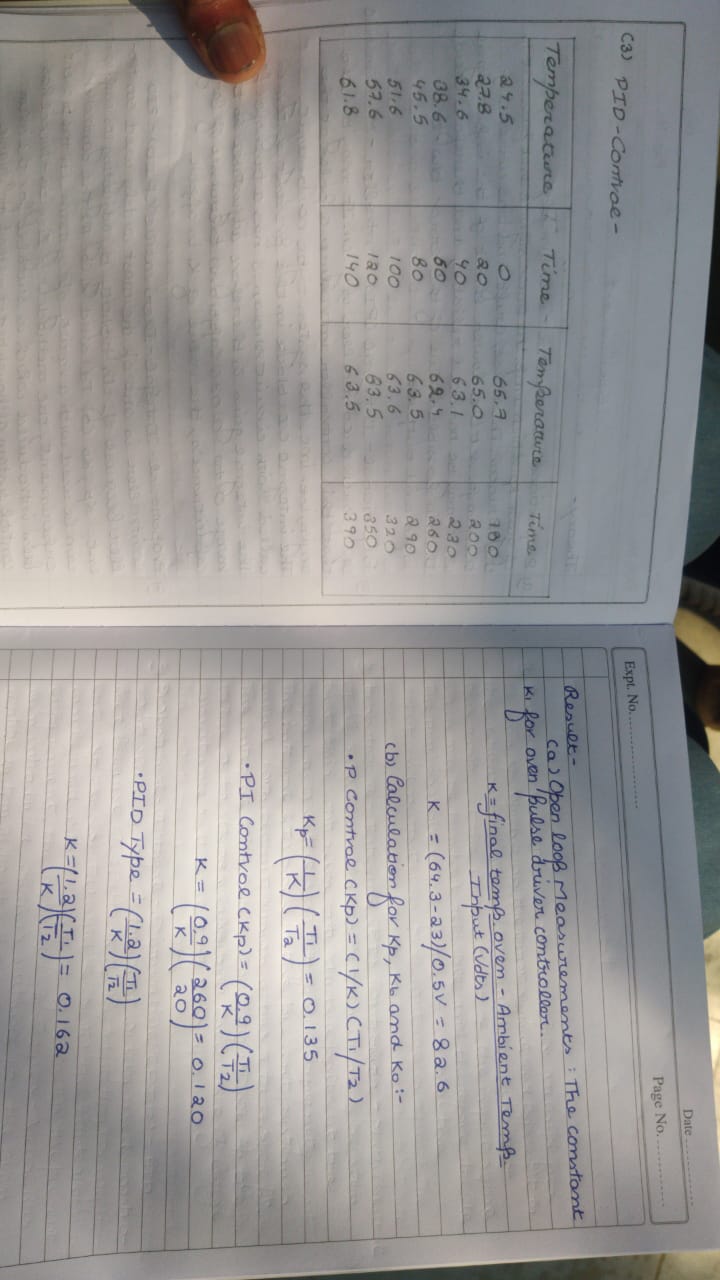 C3) PID-Control-
Temperature Time - Temperature Time
24.5 0 65.7 180
27.8 20 65.0 200
34.6 40 63.1 230
38.6 60 62.4 260
45.5 80 63.5 290
51.6 100 63.6 320
57.6 120 63.5 350
61.8 140 63.5 390
Date
Expt. No. Page No.
Result-
(a) Open loop Measurements: The constant
K, for oven pulse driver controller.
K = final temp. oven - Ambient Temp
Input (Volts)
K = (64.3-23)/0.5V = 82.6
(b) Calculation for Kp, and KD:-
• P Control (Kp) = (1/K) (T1/T2)
Kp = (1/K) (T1/T2) = 0.135
• PI Control (Kp) = (0.9/K) (T1/T2)
K = (0.9/K) (260/20) = 0.120
• PID Type = (1.2/K) (T1/T2)
K = (1.2/K) (T1/T2) = 0.162